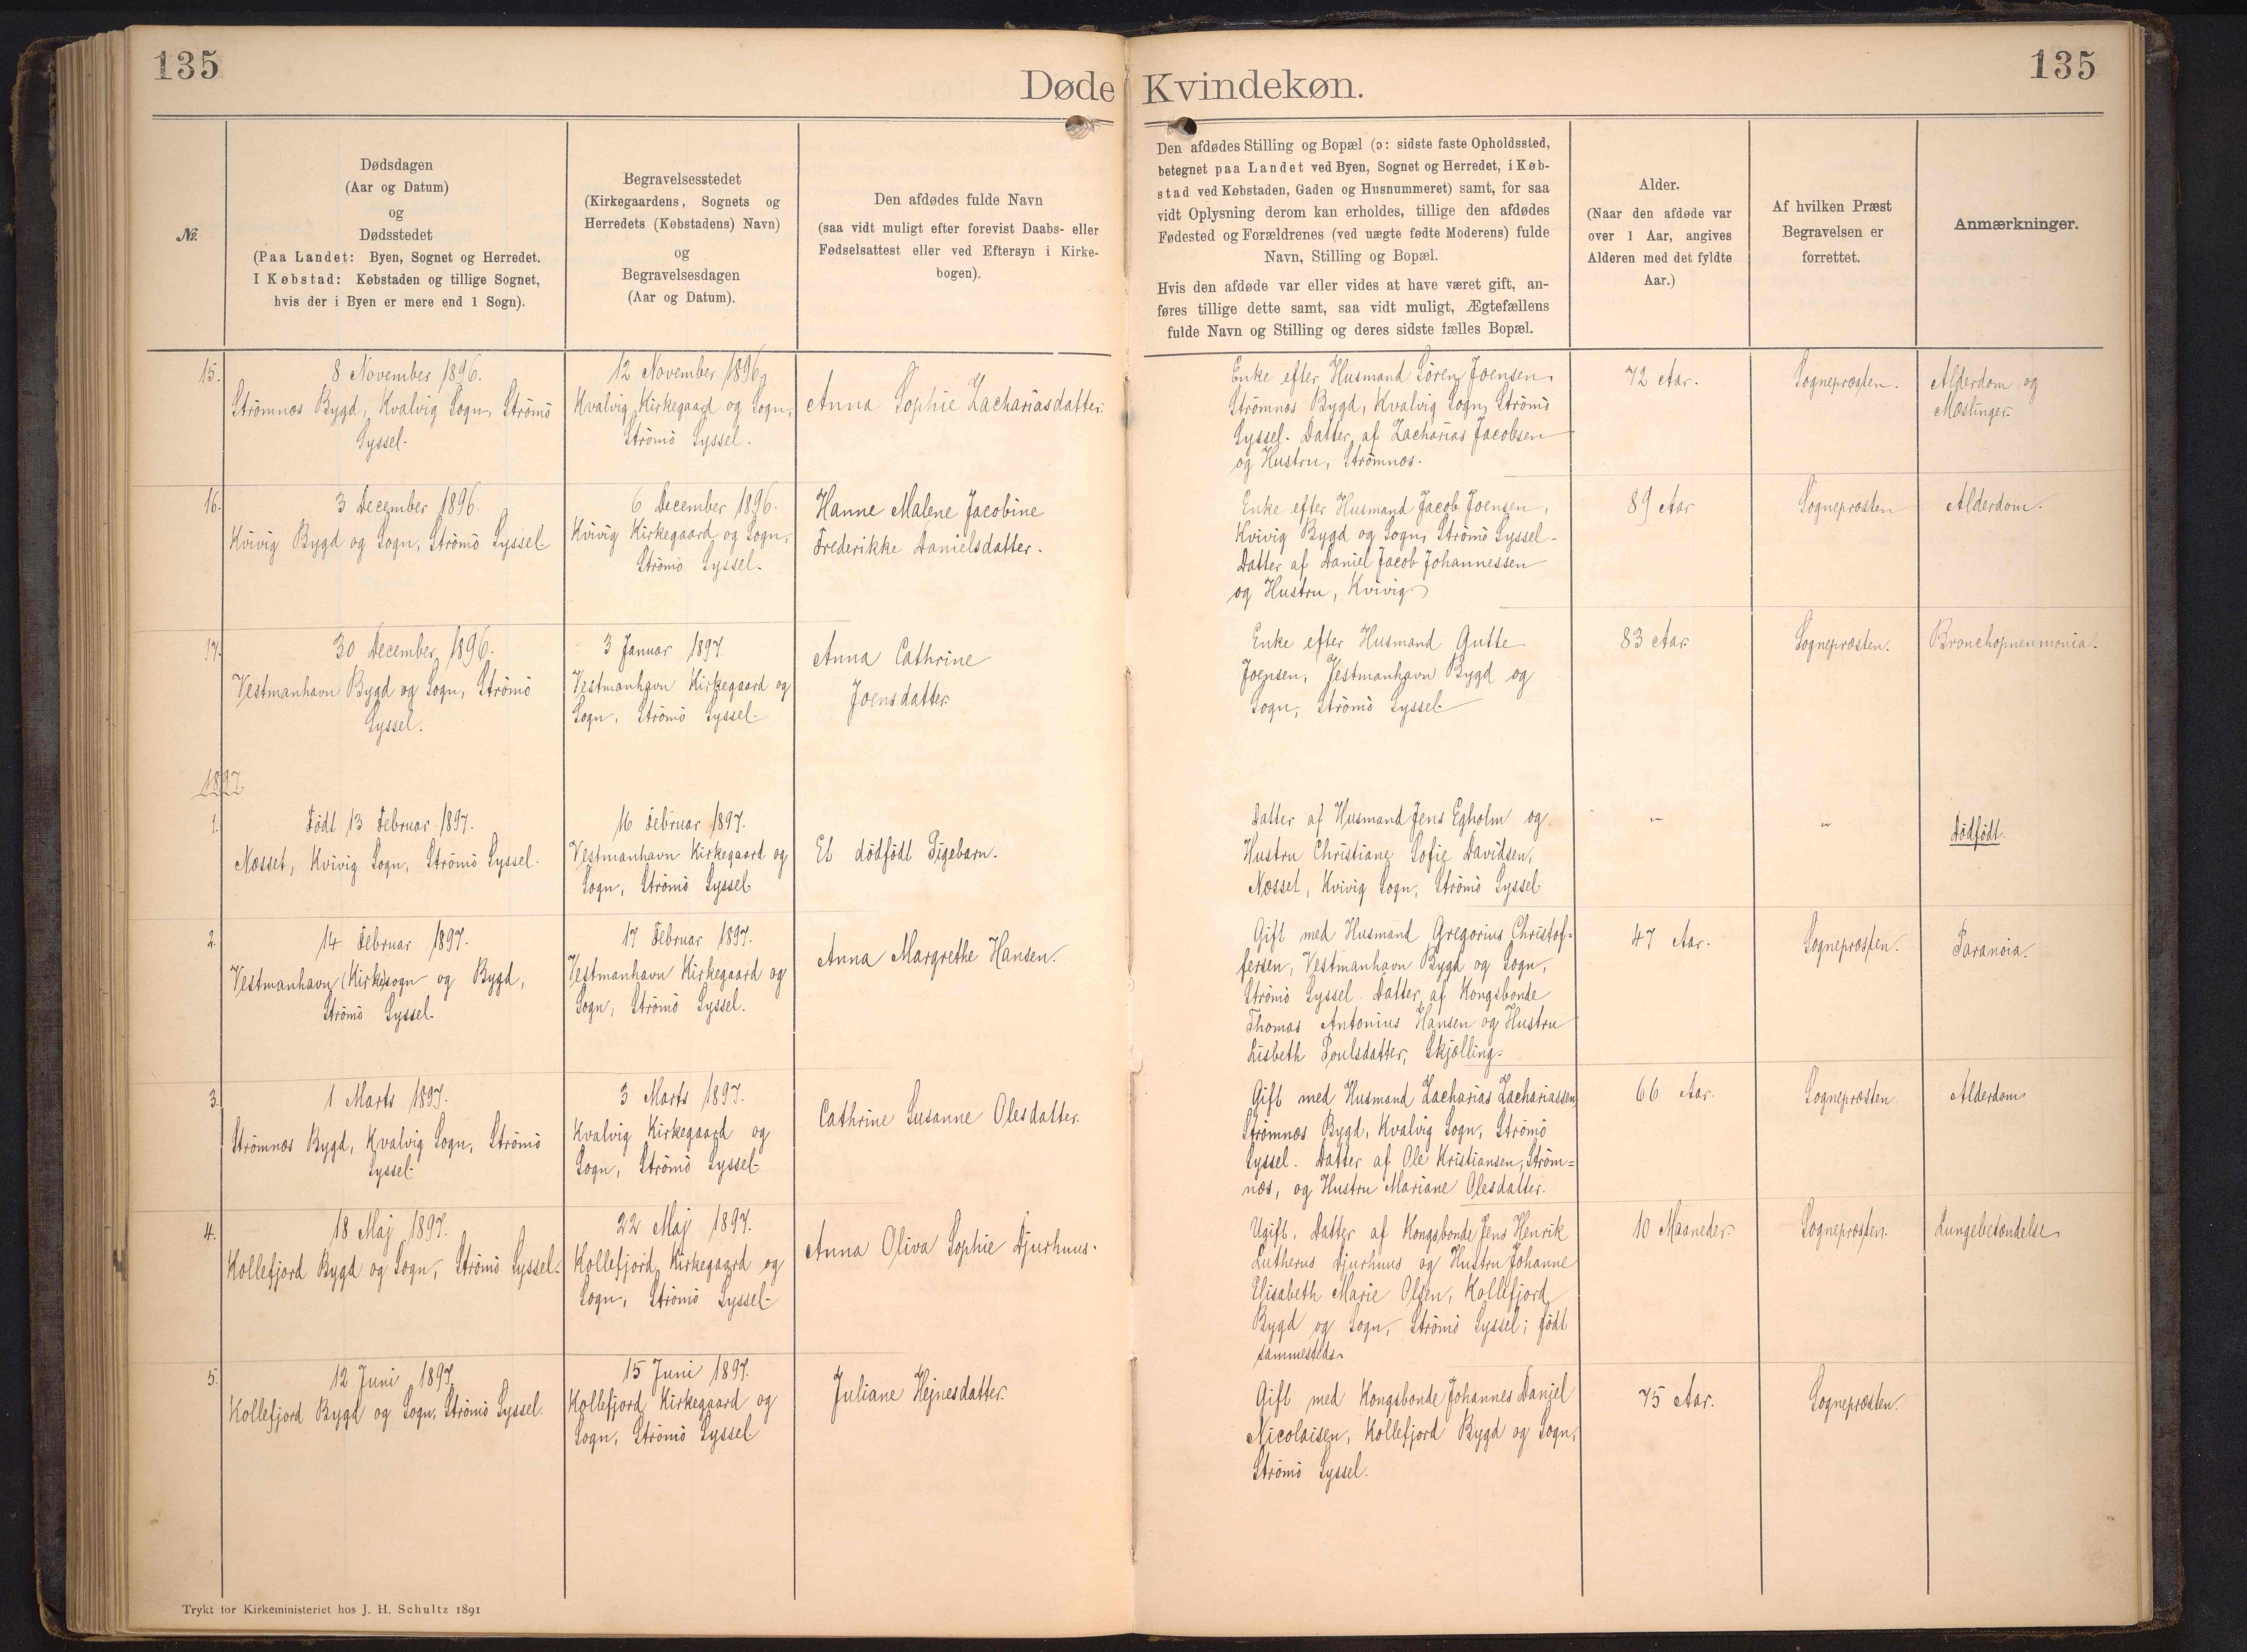 135
135
Døde Kvindekøn.
№.
Dødsdagen
(Aar og Datum)
og
Dødsstedet
(Paa Landet: Byen, Sognet og Herredet.
I Købstad: Købstaden og tillige Sognet,
hvis der i Byen er mere end 1 Sogn).
Begravelsesstedet
(Kirkegaardens, Sognets og
Herredets (Købstadens) Navn)
og
Begravelsesdagen
(Aar og Datum).
Den afdødes fulde Navn
(saa vidt muligt efter forevist Daabs- eller
Fødselsattest eller ved Eftersyn i Kirke-
bogen).
Den afdødes Stilling og Bopæl (ɔ: sidste faste Opholdssted,
betegnet paa Landet ved Byen, Sognet og Herredet, i Køb-
stad ved Købstaden, Gaden og Husnummeret) samt, for saa
vidt Oplysning derom kan erholdes, tillige den afdødes
Fødested og Forældrenes (ved uægte fødte Moderens) fulde
Navn, Stilling og Bopæl.
Hvis den afdøde var eller vides at have været gift, an-
føres tillige dette samt, saa vidt muligt, Ægtefællens
fulde Navn og Stilling og deres sidste fælles Bopæl.
Alder.
(Naar den afdøde var
over 1 Aar, angives
Alderen med det fyldte
Aar.)
Af hvilken Præst
Begravelsen er
forrettet.
Anmærkninger.
15.
8 November 1896.
Strömnæs Bygd, Kvalvig Sogn, Strömö
Syssel.
12 November 1896.
Kvalvig Kirkegaard og Sogn,
Strömö Syssel.
Anna Sophie Zachariasdatter.
Enke efter Husmand Sören Joensen,
Strömnæs Bygd, Kvalvig Sogn, Strömö
Syssel. Datter af Zacharias Jacobsen
og Hustru, Strömnæs.
72 Aar.
Sognepræsten.
Alderdom og
Mæslinger.
16.
3 December 1896.
Kvivig Bygd og Sogn, Strömö Syssel.
6 December 1896.
Kvivig Kirkegaard og Sogn,
Strömö Syssel.
Hanne Malene Jacobine
Frederikke Danielsdatter.
Enke efter Husmand Jacob Joensen,
Kvivig Bygd og Sogn, Strömö Syssel.
Datter af Daniel Jacob Johannessen
og Hustru, Kvivig
89 Aar
Sognepræsten
Alderdom.
17.
30 December 1896.
Vestmanhavn Bygd og Sogn, Strömö
Syssel.
3 Januar 1897.
Vestmanhavn Kirkegaard og
Sogn, Strömö Syssel.
Anna Cathrine
Joensdatter.
Enke efter Husmand Gutte
Joensen, Vestmanhavn Bygd og
Sogn, Strömö Syssel.
83 Aar.
Sognepræsten.
Bronchopneumonia.
1897.
1.
Födt 13 Februar 1897.
Næsset, Kvivig Sogn, Strömö Syssel.
16 Februar 1897.
Vestmanhavn Kirkegaard og
Sogn, Strömö Syssel.
Et dödfödt Pigebarn.
Datter af Husmand Jens Egholm og
Hustru Christiane Sofie Davidsen,
Næsset, Kvivig Sogn, Strömö Syssel.
"
"
Dödfödt.
2.
14 Februar 1897.
Vestmanhavn (Kirke)sogn og Bygd,
Strömö Syssel.
17 Februar 1897.
Vestmanhavn Kirkegaard og
Sogn, Strömö Syssel.
Anna Margrethe Hansen.
Gift med Husmand Gregorius Christof=
fersen, Vestmanhavn Bygd og Sogn,
Strömö Syssel. Datter af Kongsbonde
Thomas Antonius Hansen og Hustru
Lisbeth Poulsdatter, Skjælling.
47 Aar.
Sognepræsten.
Paranoia.
3.
1 Marts 1897.
Strömnæs Bygd, Kvalvig Sogn, Strömö
Syssel.
3 Marts 1897.
Kvalvig Kirkegaard og
Sogn, Strömö Syssel.
Cathrine Susanne Olesdatter.
Gift med Husmand Zacharias Zachariassen,
Strömnæs Bygd, Kvalvig Sogn, Strömö
Syssel. Datter af Ole Kristiansen, Ström=
næs, og Hustru Mariane Olesdatter.
66 Aar.
Sognepræsten.
Alderdom
4.
18 Maj 1897.
Kollefjord Bygd og Sogn, Strömö Syssel.
22 Maj 1897.
Kollefjord Kirkegaard og
Sogn, Strömö Syssel.
Anna Oliva Sophie Djurhuus.
Ugift. Datter af Kongsbonde Jens Henrik
Lutherus Djurhuus og Hustru Johanne
Elisabeth Marie Olsen, Kollefjord
Bygd og Sogn, Strömö Syssel; födt
sammesteds.
10 Maaneder.
Sognepræsten.
Lungebetændelse
5.
12 Juni 1897.
Kollefjord Bygd og Sogn, Strömö Syssel.
15 Juni 1897.
Kollefjord Kirkegaard og
Sogn, Strömö Syssel
Juliane Hejnesdatter.
Gift med Kongsbonde Johannes Daniel
Nicolaisen, Kollefjord Bygd og Sogn,
Strömö Syssel.
75 Aar.
Sognepræsten.
Trykt for Kirkeministeriet hos J. H. Schultz 1891